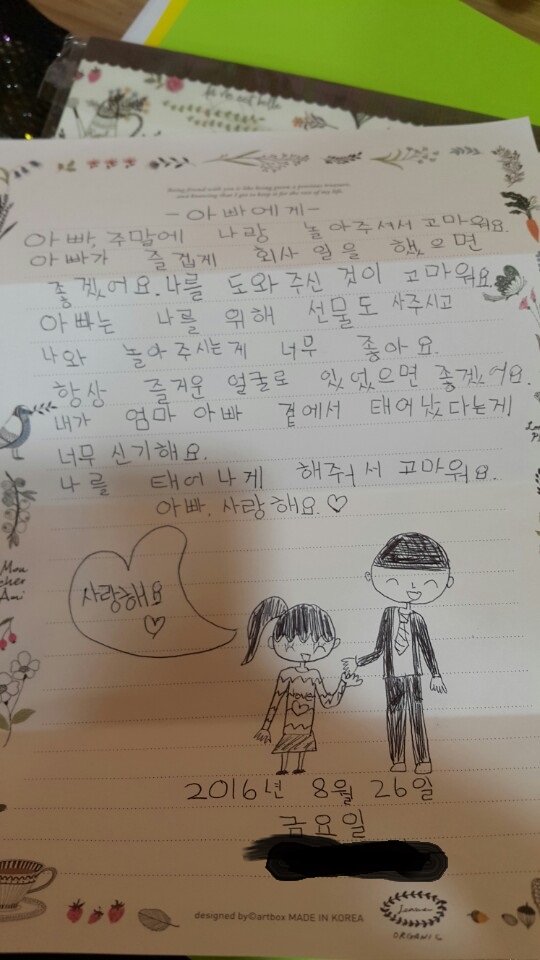 Being friend with you is like being given a precious treasure,
and knowing that I get to keep it for the rest of my life.
-아빠에게-
아빠, 주말에 나랑 놀아주셔서 고마워요.
아빠가 즐겁게 회사 일을 했으면
좋겠어요. 나를 도와주신 것이 고마워요.
아빠는 나를 위해 선물도 사주시고
나와 놀아주시는게 너무 좋아요.
항상 즐거운 얼굴로 있었으면 좋겠어요.
내가 엄마 아빠 곁에서 태어났다는게
너무 신기해요.
나를 태어나게 해줘서 고마워요.
아빠. 사랑해요. ♡
Mon
cher
Ami
사랑해요
♡
Love
2016년 8월 26일
금요일
designed by©artbox MADE IN KOREA
ORGANIC